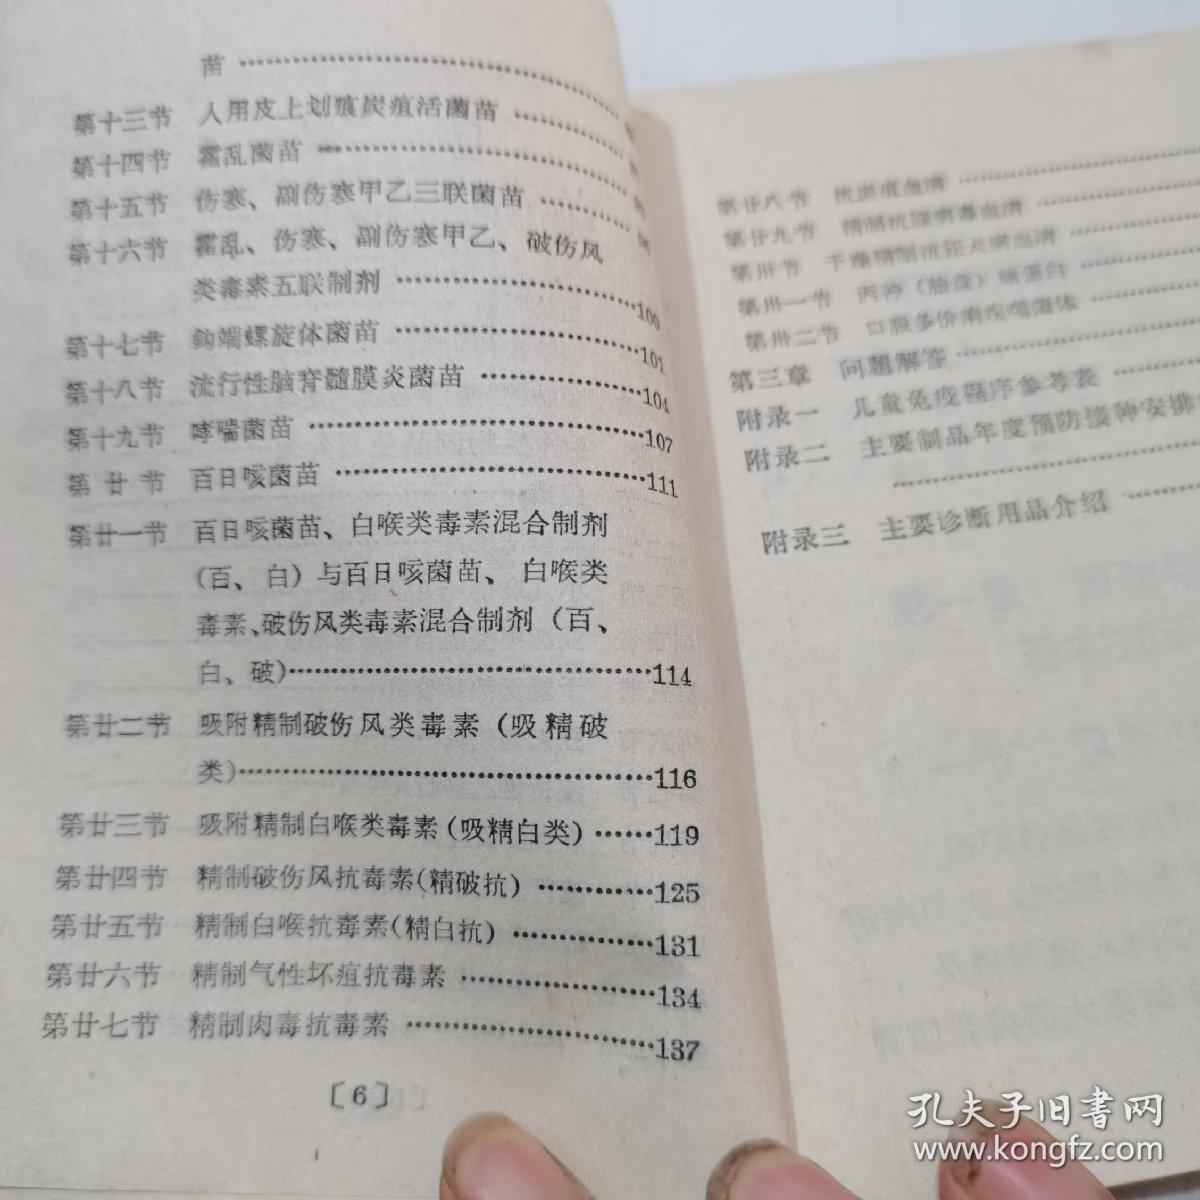 苗
第十三节 人用皮上划痕炭疽活菌苗
第十四节 霍乱菌苗
第十五节 伤寒、副伤寒甲乙三联菌苗
第十六节 霍乱、伤寒、副伤寒甲乙、破伤风
类毒素五联制剂 100
第十七节 鈎端螺旋体菌苗 101
第十八节 流行性脑脊髓膜炎菌苗 104
第十九节 哮喘菌苗 107
第廿节 百日咳菌苗 111
第廿一节 百日咳菌苗、白喉类毒素混合制剂
(百、白)与百日咳菌苗、白喉类
毒素、破伤风类毒素混合制剂(百、
白、破) 114
第廿二节 吸附精制破伤风类毒素(吸精破
类) 116
第廿三节 吸附精制白喉类毒素(吸精白类) 119
第廿四节 精制破伤风抗毒素(精破抗) 125
第廿五节 精制白喉抗毒素(精白抗) 131
第廿六节 精制气性坏疽抗毒素 134
第廿七节 精制肉毒抗毒素 137
〔6〕
第廿八节 抗炭疽血清
第廿九节 精制抗腺病毒血清
第卅节 干燥精制抗狂犬病血清
第卅一节 丙种(胎盘)球蛋白
第卅二节 口服多价痢疾噬菌体
第三章 问题解答
附录一 儿童免疫程序参考表
附录二 主要制品年度预防接种安排
附录三 主要诊断用品介绍
孔夫子旧书网
www.kongfz.com